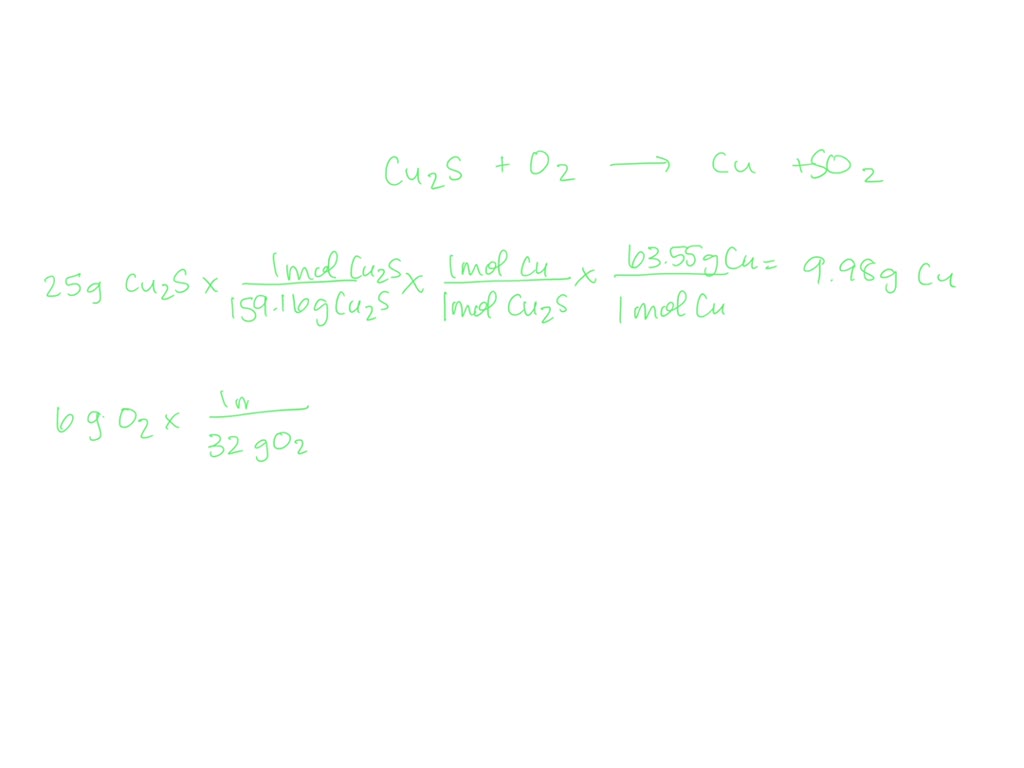 Cu₂S + O₂ ⟶ Cu + SO₂
25g Cu₂S x 1mol Cu₂S / 159.16g Cu₂S x 1mol Cu / 1mol Cu₂S x 63.55g Cu / 1 mol Cu = 9.98g Cu
6 g O₂ x 1m / 32 g O₂